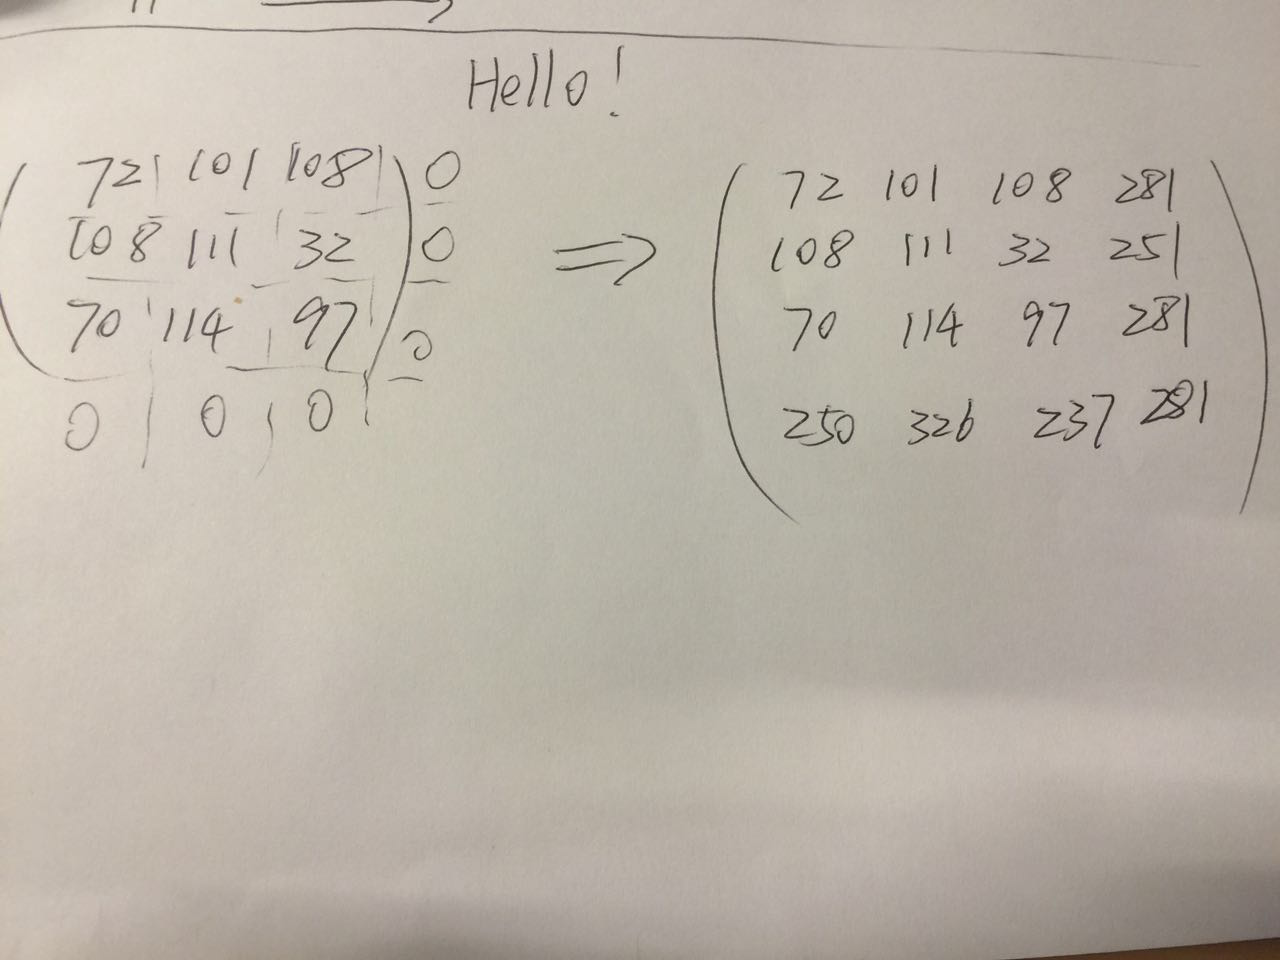 Hello!
72 101 108 0
108 111 32 0
70 114 97 0
0 0 0
⇒
72 101 108 281
108 111 32 251
70 114 97 281
250 326 237 281